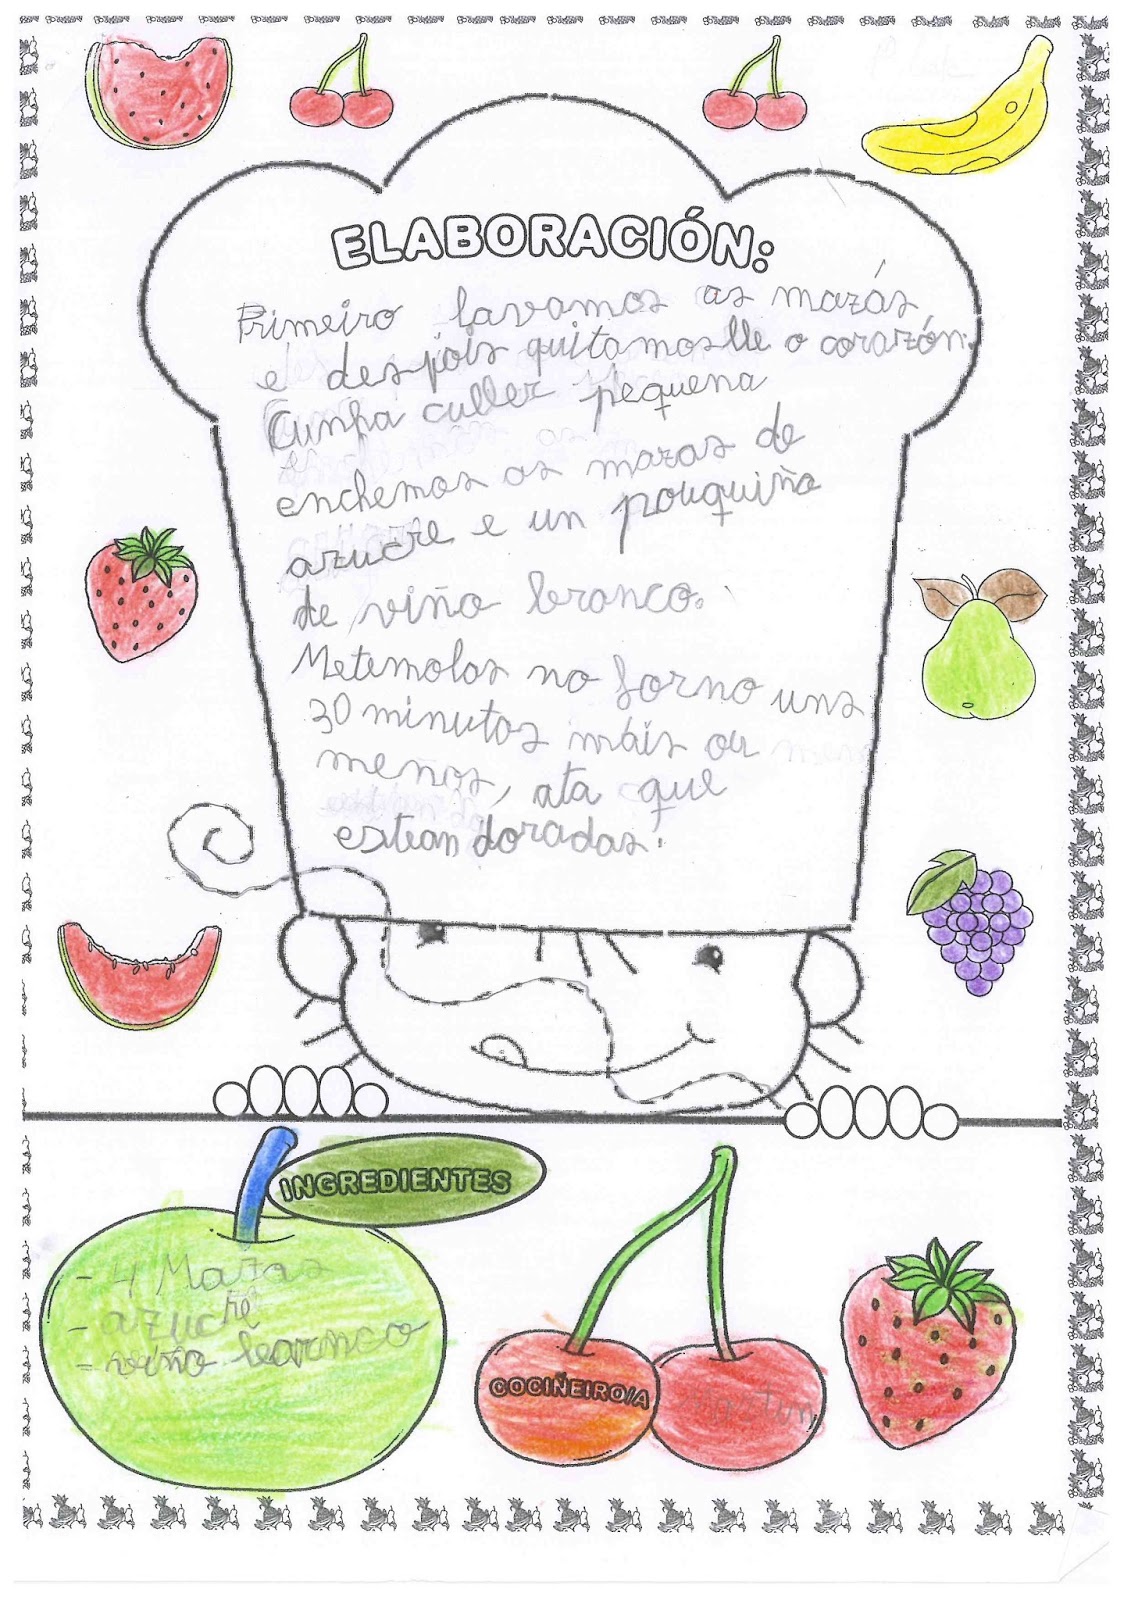 ELABORACIÓN:
Primeiro lavamos as mazás
e despois quitamoslle o corazón.
Cunha culler pequena
enchemos as mazas de
azucre e un pouquiño
de viño branco.
Metemolas no forno uns
30 minutos máis ou
menos, ata que
estean doradas.
INGREDIENTES
- 4 Mazas
- azucre
- viño barnco
COCIÑEIRO/A